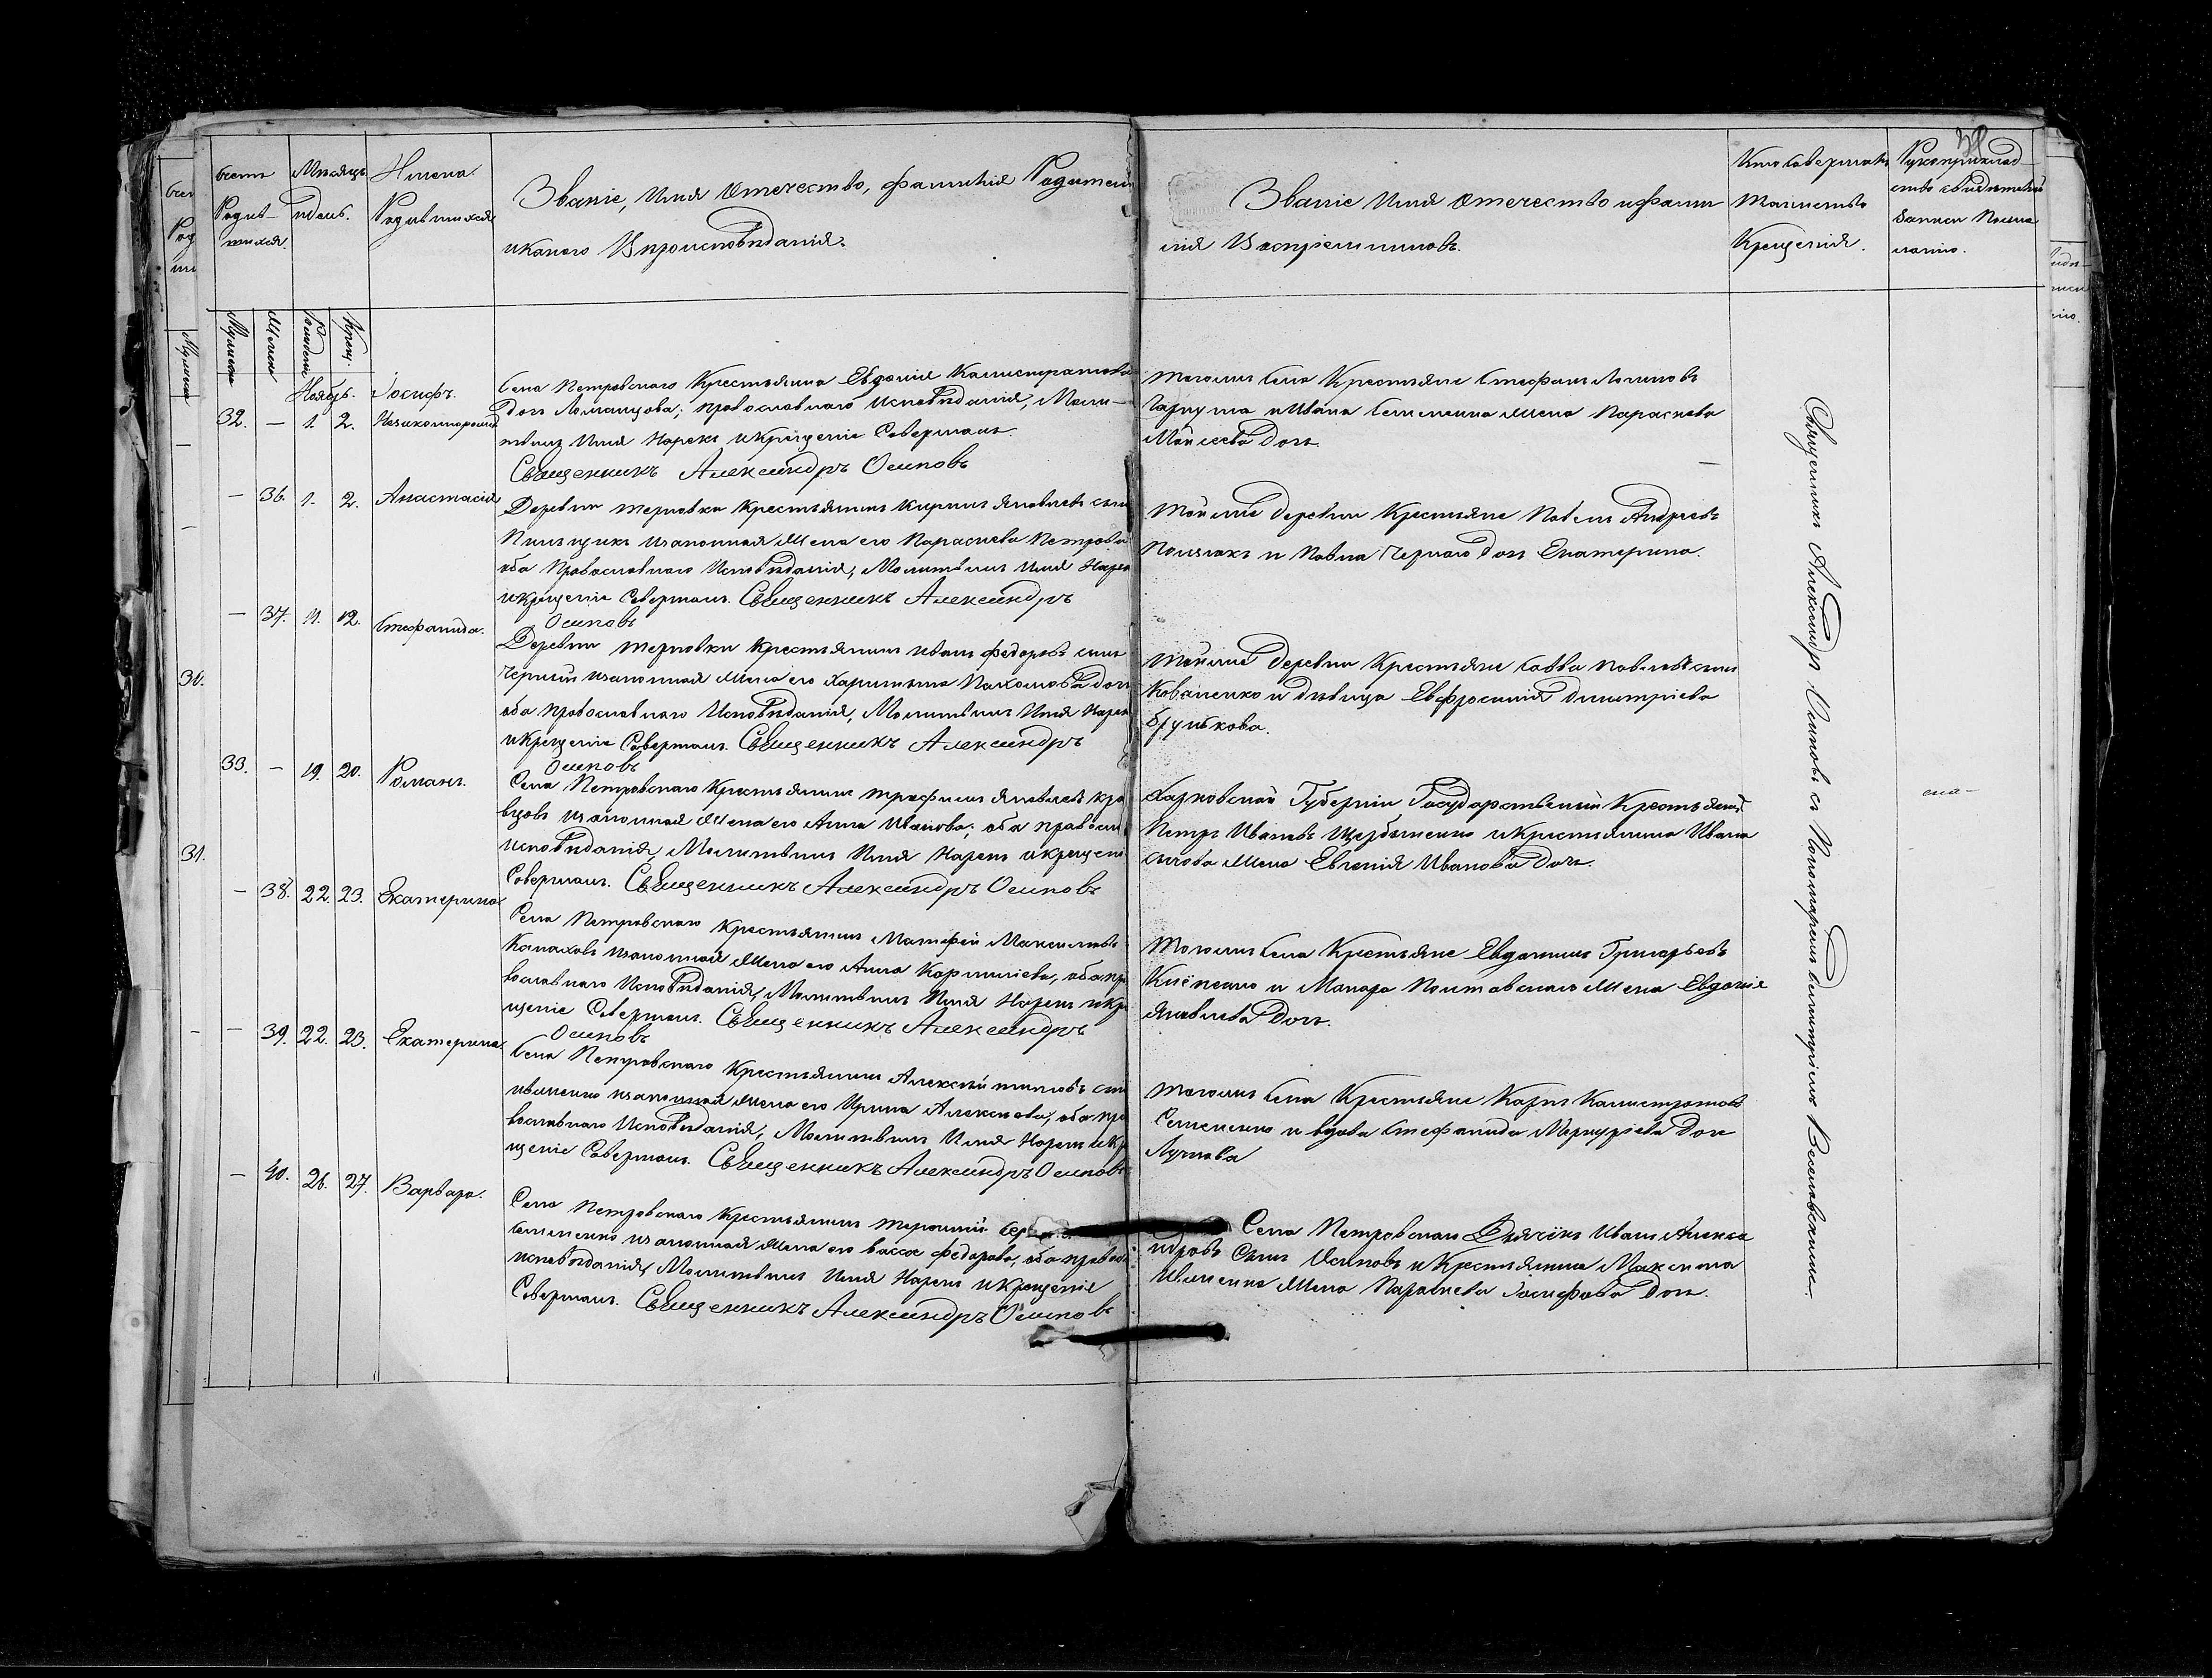 Счетъ Родив-шихся.
Мѣсяцъ и день.
Имена Родившихся
Званіе, Имя Отечество, фамилія Родителей
и какого Вѣроисповѣданія.
Званіе Имя Отечество и фами
лія Воспріемниковъ.
Кто совершалъ
Таинство
Крещенія.
Рукоприклад-
ство свидѣтелей
записи по жела
нію.
Мужеска
Женска
Рожденія
Крещ.
Ноябрь.
32. — 1. 2. Іосифъ. Незаконнорожд
Села Петровскаго Крестьянка Евдокія Калистратова
дочь Ломанцова; православнаго Исповѣданія, Моли-
твилъ Имя Нарекъ и Крещеніе Совершалъ.
Священникъ Александръ Осиповъ
Тогоже села Крестьяне Стефанъ Логиновъ
и Ивана Семенина жена Параскева
Моисеева дочь.
— 36. 1. 2. Анастасія
Деревни Терновки Крестьянинъ Кирилъ Яковлевъ сынъ
законная жена его Параскева Петрова
оба Православнаго Исповѣданія, Молитвилъ Имя Нарек
и крещеніе Совершалъ. Священникъ Александръ
Осиповъ
Тойже деревни Крестьяне Павелъ Андреевъ
и Павла Чернаго дочь Екатерина.
— 37. 11. 12. Стефанида.
Деревни Терновки Крестьянинъ Иванъ Федоровъ сынъ
Черный и законная жена его Харитина Пахомова дочь
оба православнаго Исповѣданія, Молитвилъ Имя Нарек
и Крещеніе Совершалъ. Священникъ Александръ
Осиповъ
Тойже деревни Крестьяне Савва Павловъ сынъ
Коваленко и дѣвица Евфросинія Димитріева
Брунькова.
33. — 19. 20. Романъ.
Села Петровскаго Крестьянинъ Трофимъ Яковлевъ Кра
вцовъ и законная жена его Анна Иванова; оба правосл
исповѣданія, Молитвилъ Имя Нарекъ и крещеніе
Совершалъ. Священникъ Александръ Осиповъ
Харковской Губерніи Государственный Крестьянинъ
Петръ Ивановъ Щербиненко и Крестьянина Ивана
Сычова жена Евгенія Иванова дочь.
— 38. 22. 23. Екатерина
Села Петровскаго Крестьянинъ Матфей Максимовъ
Калаховъ и законная жена его Анна Корниліева, оба пра
вославнаго Исповѣданія, Молитвилъ Имя Нарекъ и Кре
щеніе Совершалъ. Священникъ Александръ
Осиповъ
Тогоже села Крестьяне Евдокимъ Григорьевъ
и Макара Полтавскаго жена Евдокія
Яковлева дочь.
— 39. 22. 23. Екатерина.
Села Петровскаго Крестьянинъ Алексѣй Титовъ сынъ
Ивченко и законная жена его Ирина Алексѣева, оба пра
вославнаго Исповѣданія, Молитвилъ Имя Нарекъ и Кре
щеніе Совершалъ. Священникъ Александръ Осиповъ
Тогоже села Крестьяне Карпъ Калистратовъ
Семененко и вдова Стефанида Меркуріева дочь
— 40. 26. 27. Варвара.
Села Петровскаго Крестьянинъ Терентій
Семененко и законная жена его Васса Федорова, оба правосл
исповѣданія, Молитвилъ Имя Нарекъ и Крещеніе
Совершалъ. Священникъ Александръ Осиповъ
Села Петровскаго Дьячёкъ Иванъ Алекса
ндровъ Сынъ Осиповъ и Крестьянина Максима
Ивченка жена Параскева Іосифова дочь.
Священникъ Александръ Осиповъ съ Пономаремъ Димитріемъ Веселовскимъ.
30.
31.